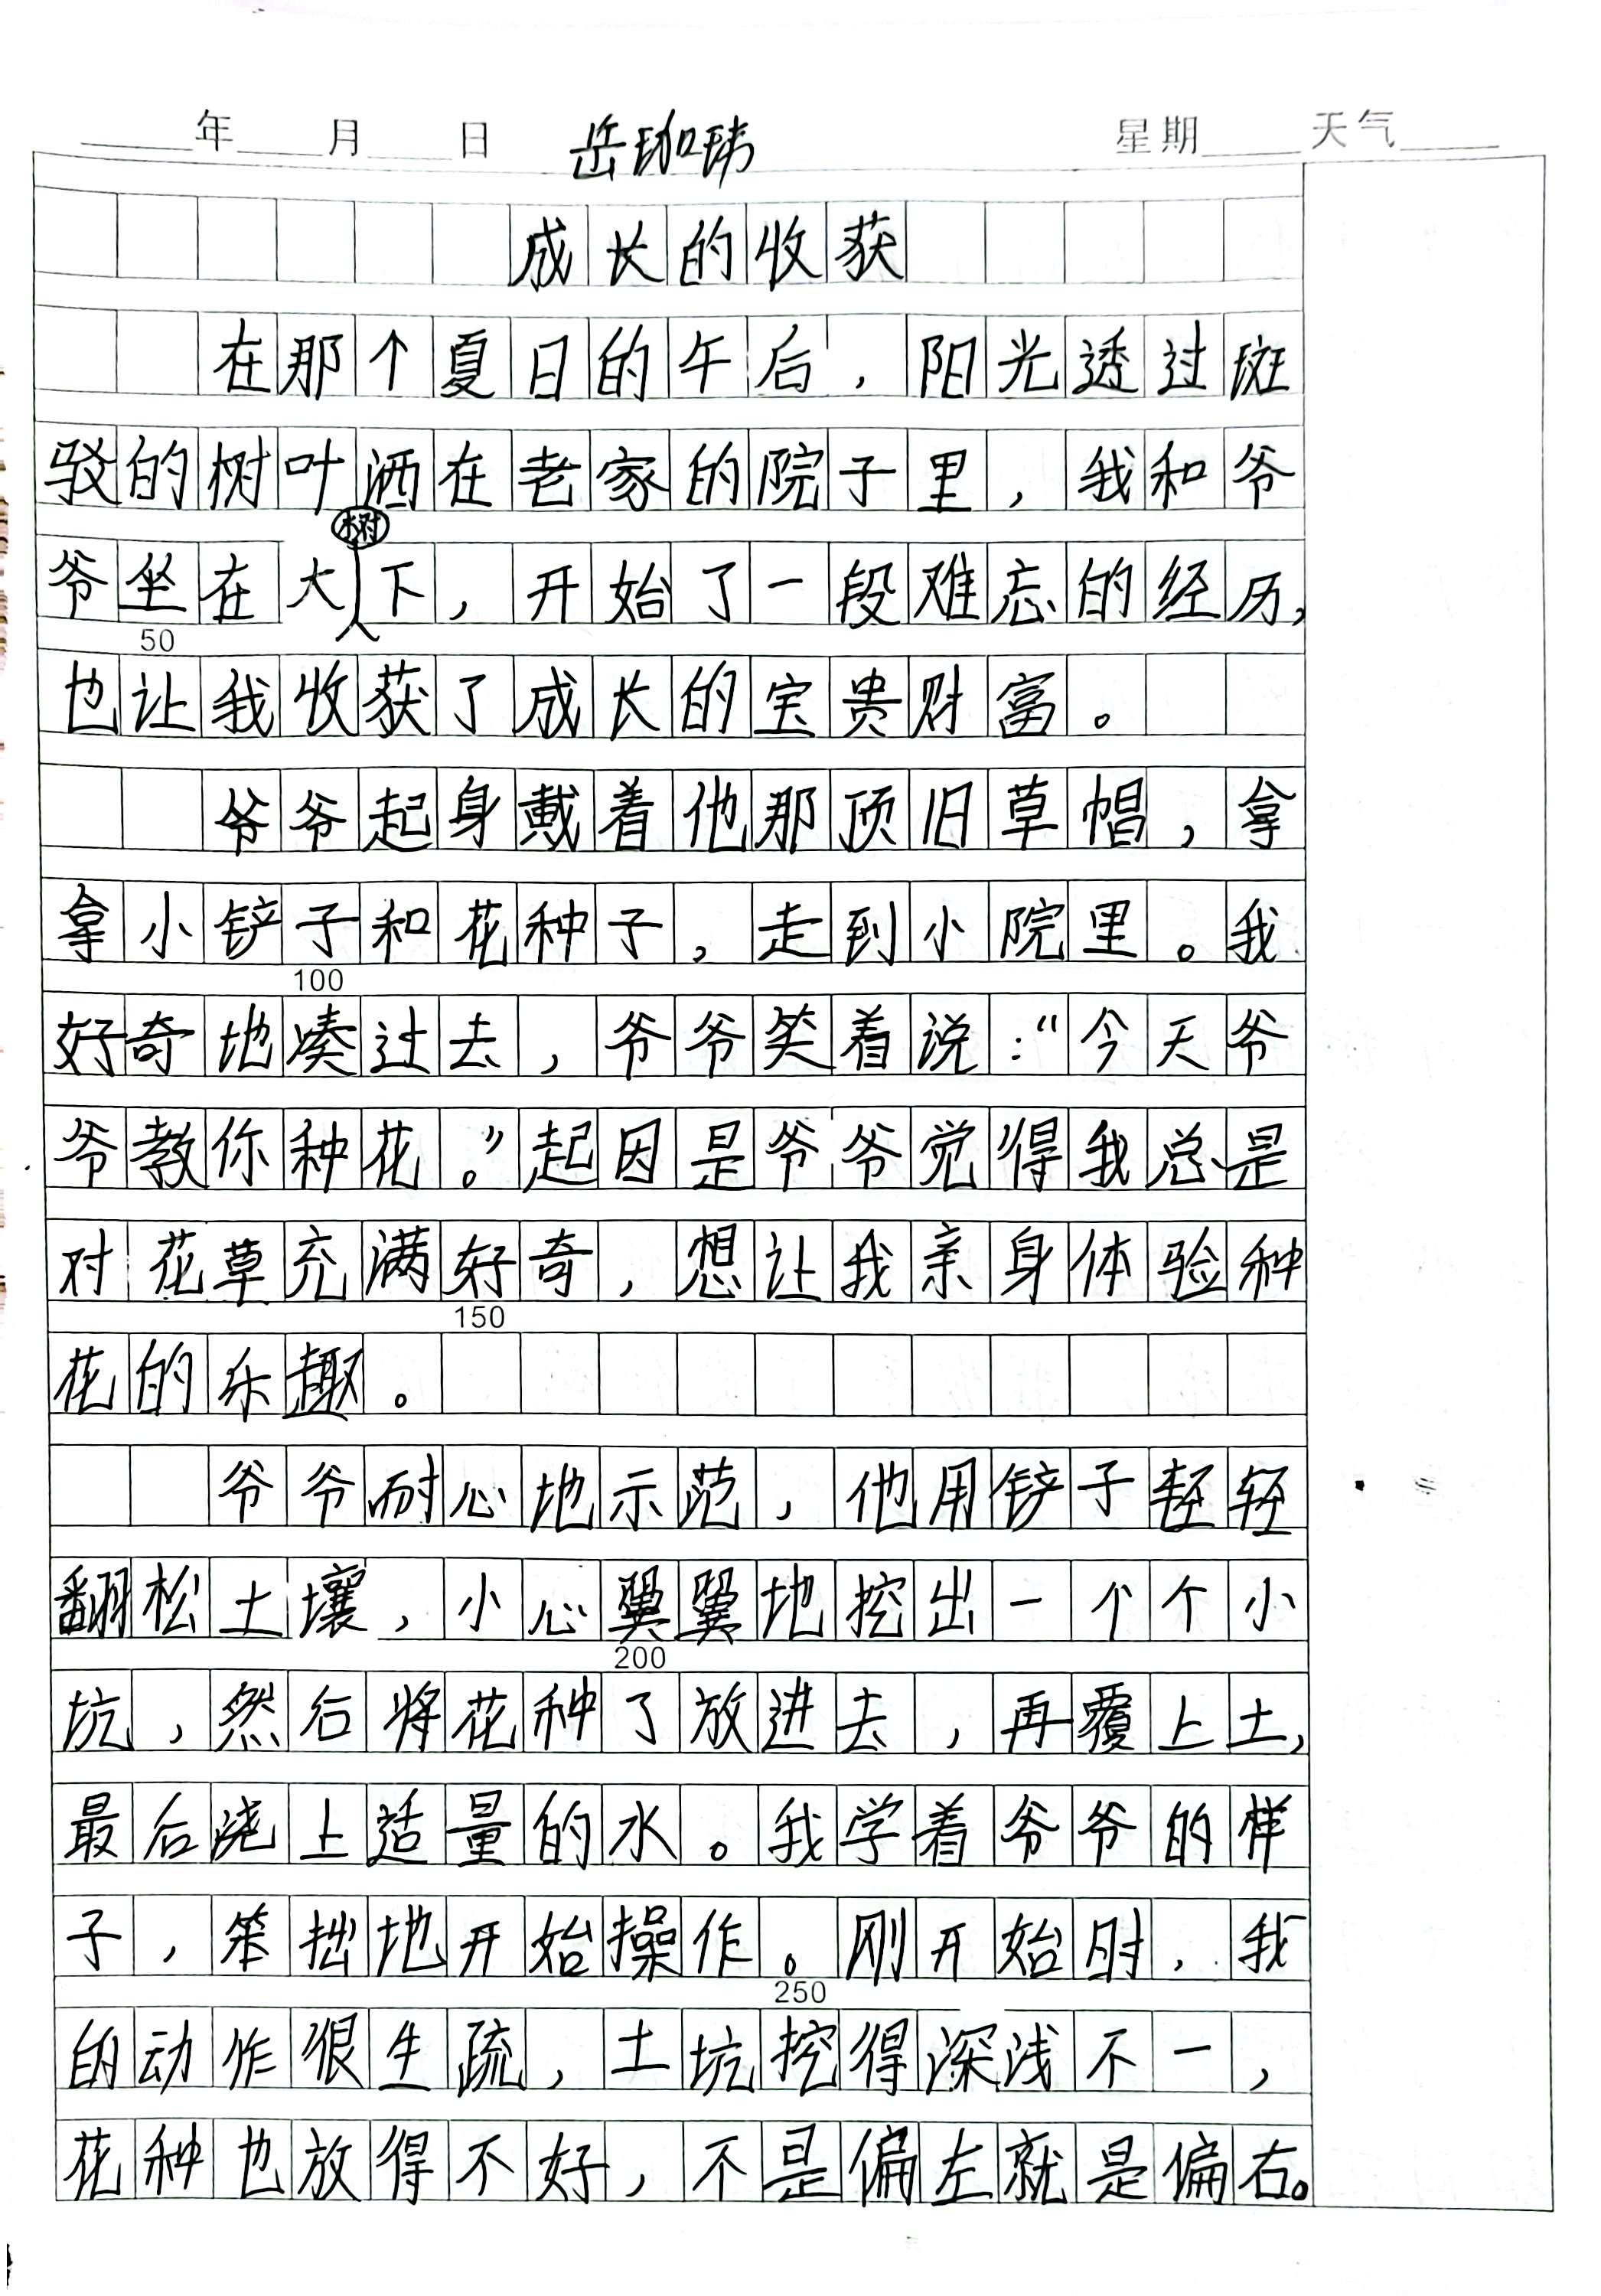 ____年____月____日 岳珈玮 星期____天气____
成长的收获
在那个夏日的午后，阳光透过斑
驳的树叶洒在老家的院子里，我和爷
爷坐在大树下，开始了一段难忘的经历，
50
也让我收获了成长的宝贵财富。
爷爷起身戴着他那顶旧草帽，拿
拿小铲子和花种子，走到小院里。我
100
好奇地凑过去，爷爷笑着说：“今天爷
爷教你种花。”起因是爷爷觉得我总是
对花草充满好奇，想让我亲身体验种
150
花的乐趣。
爷爷耐心地示范，他用铲子轻轻
翻松土壤，小心翼翼地挖出一个个小
200
坑，然后将花种了放进去，再覆上土，
最后浇上适量的水。我学着爷爷的样
子，笨拙地开始操作。刚开始时，我
250
的动作很生疏，土坑挖得深浅不一，
花种也放得不好，不是偏左就是偏右。